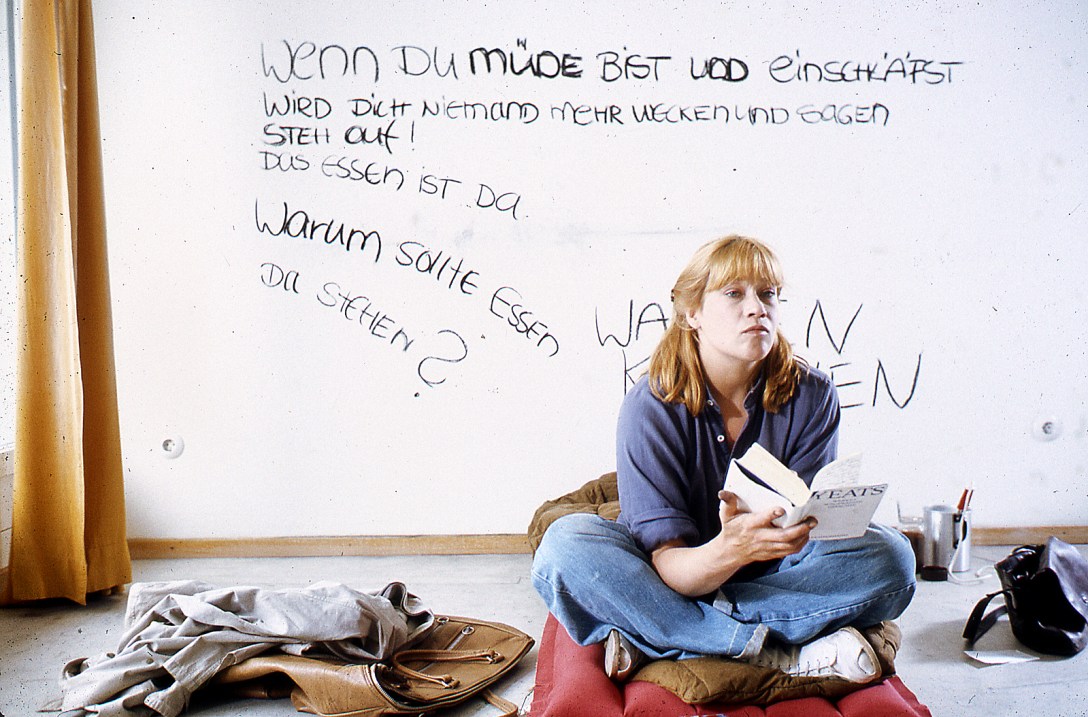 Wenn Du müde Bist und einschläfst
WIRD DICH NIEMAND MEHR WECKEN UND SAGEN
STEH auf!
Das ESSEN IST Da.
Warum sollte Essen
Da STEHEN?
YEATS